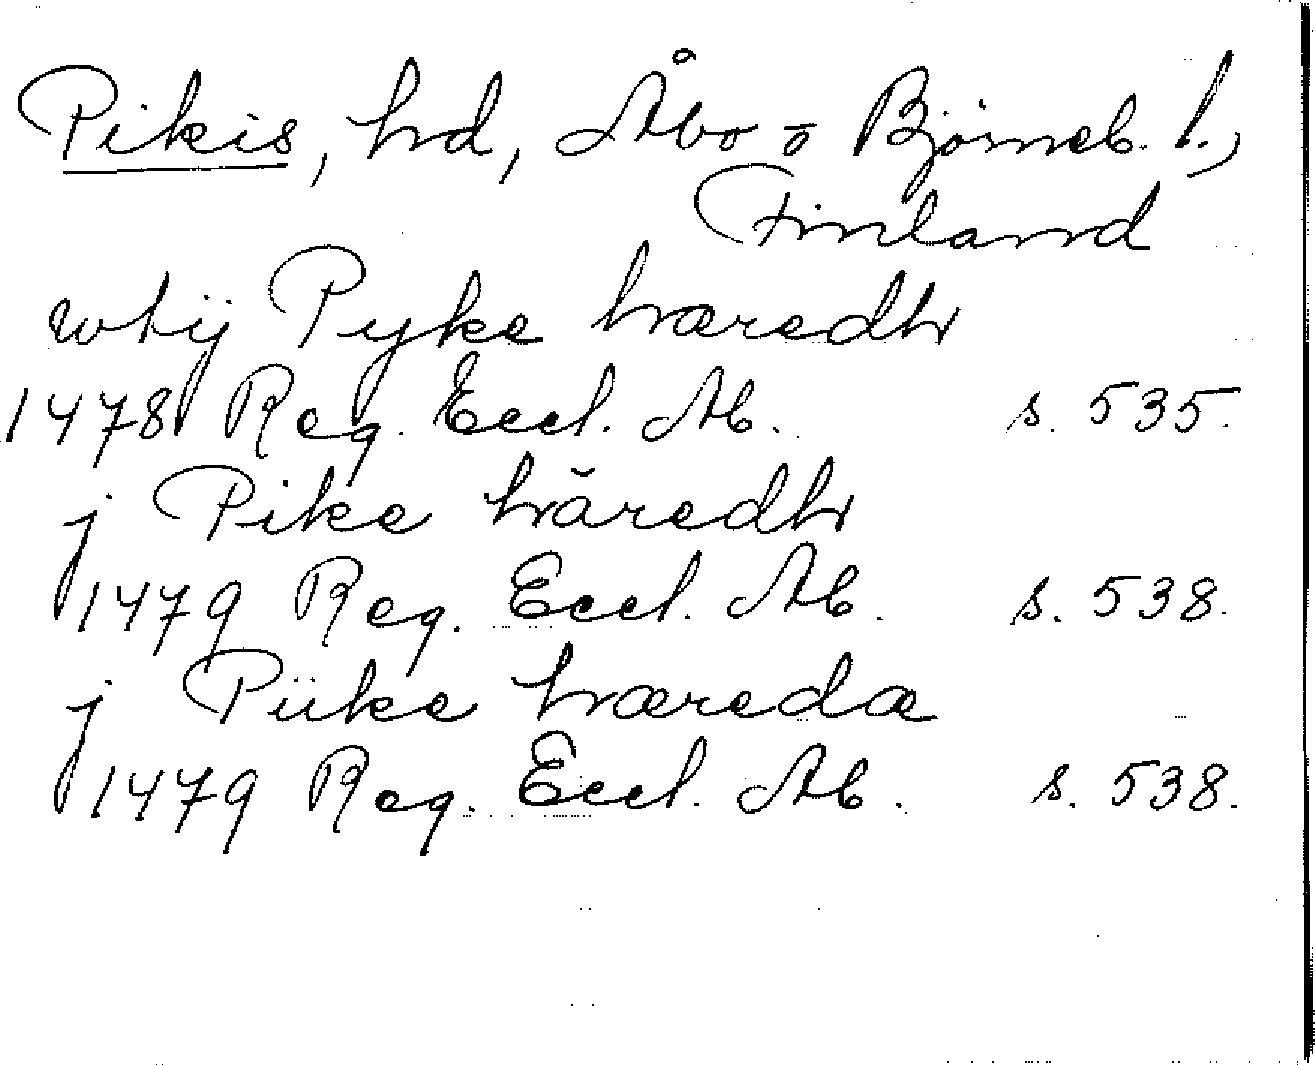 Pikis, hd, Åbo o Björneb. l.,
Finland
wtij Pyke hæredh
1478 Reg. Eccl. Ab. s. 535.
j Pike häredh
1479 Reg. Eccl. Ab. s. 538.
j Piike hæredæ
1479 Reg. Eccl. Ab. s. 538.